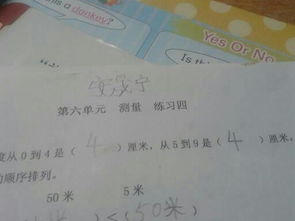 is a donkey?
Yes Or No
Is th
第六单元 测量 练习四
度从0到4是( 4 )厘米,从5到9是( 4 )厘米,
的顺序排列。
50米 5米
米)<(50米)